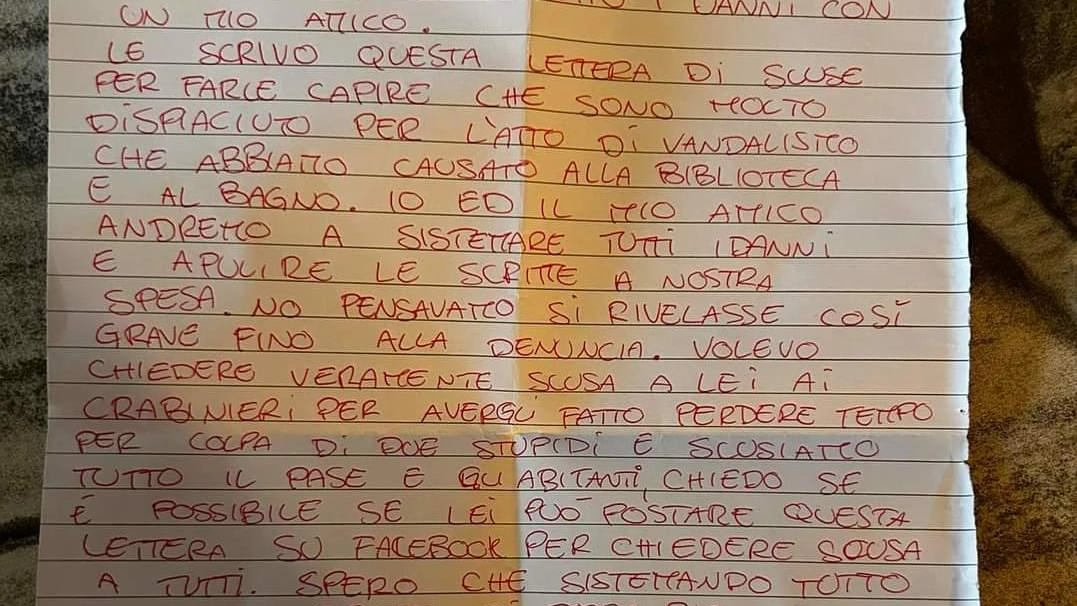 I DANNI CON
UN MIO AMICO.
LE SCRIVO QUESTA LETTERA Di SCUSE
PER FARLE CAPIRE CHE SONO MOLTO
DiSPIACIUTO PER L'ATTO Di VANDALISMO
CHE ABBIAMO CAUSATO ALLA BIBLIOTECA
E AL BAGNO. IO ED IL MIO AMICO
ANDREMO A SISTEMARE TUTTi I DANNi
E APULIRE LE SCRITTE A NOSTRA
SPESA. NO PENSAVAMO Si RIVELASSE COSÍ
GRAVE FINO ALLA DENUNCIA. VOLEVO
CHIEDERE VERAMENTE SCUSA A LEi Ai
CRABINIERi PER AVERGLi FATTO PERDERE TEMPO
PER COLPA Di DUE STUPIDi E SCUSIAMO
TUTTO IL PASE E GLI ABITANTi, CHIEDO SE
É POSSIBILE SE LEi PUÓ POSTARE QUESTA
LETTERA SU FACEBOOK PER CHIEDERE SCUSA
A TUTTi. SPERO CHE SISTEMANDO TUTTO